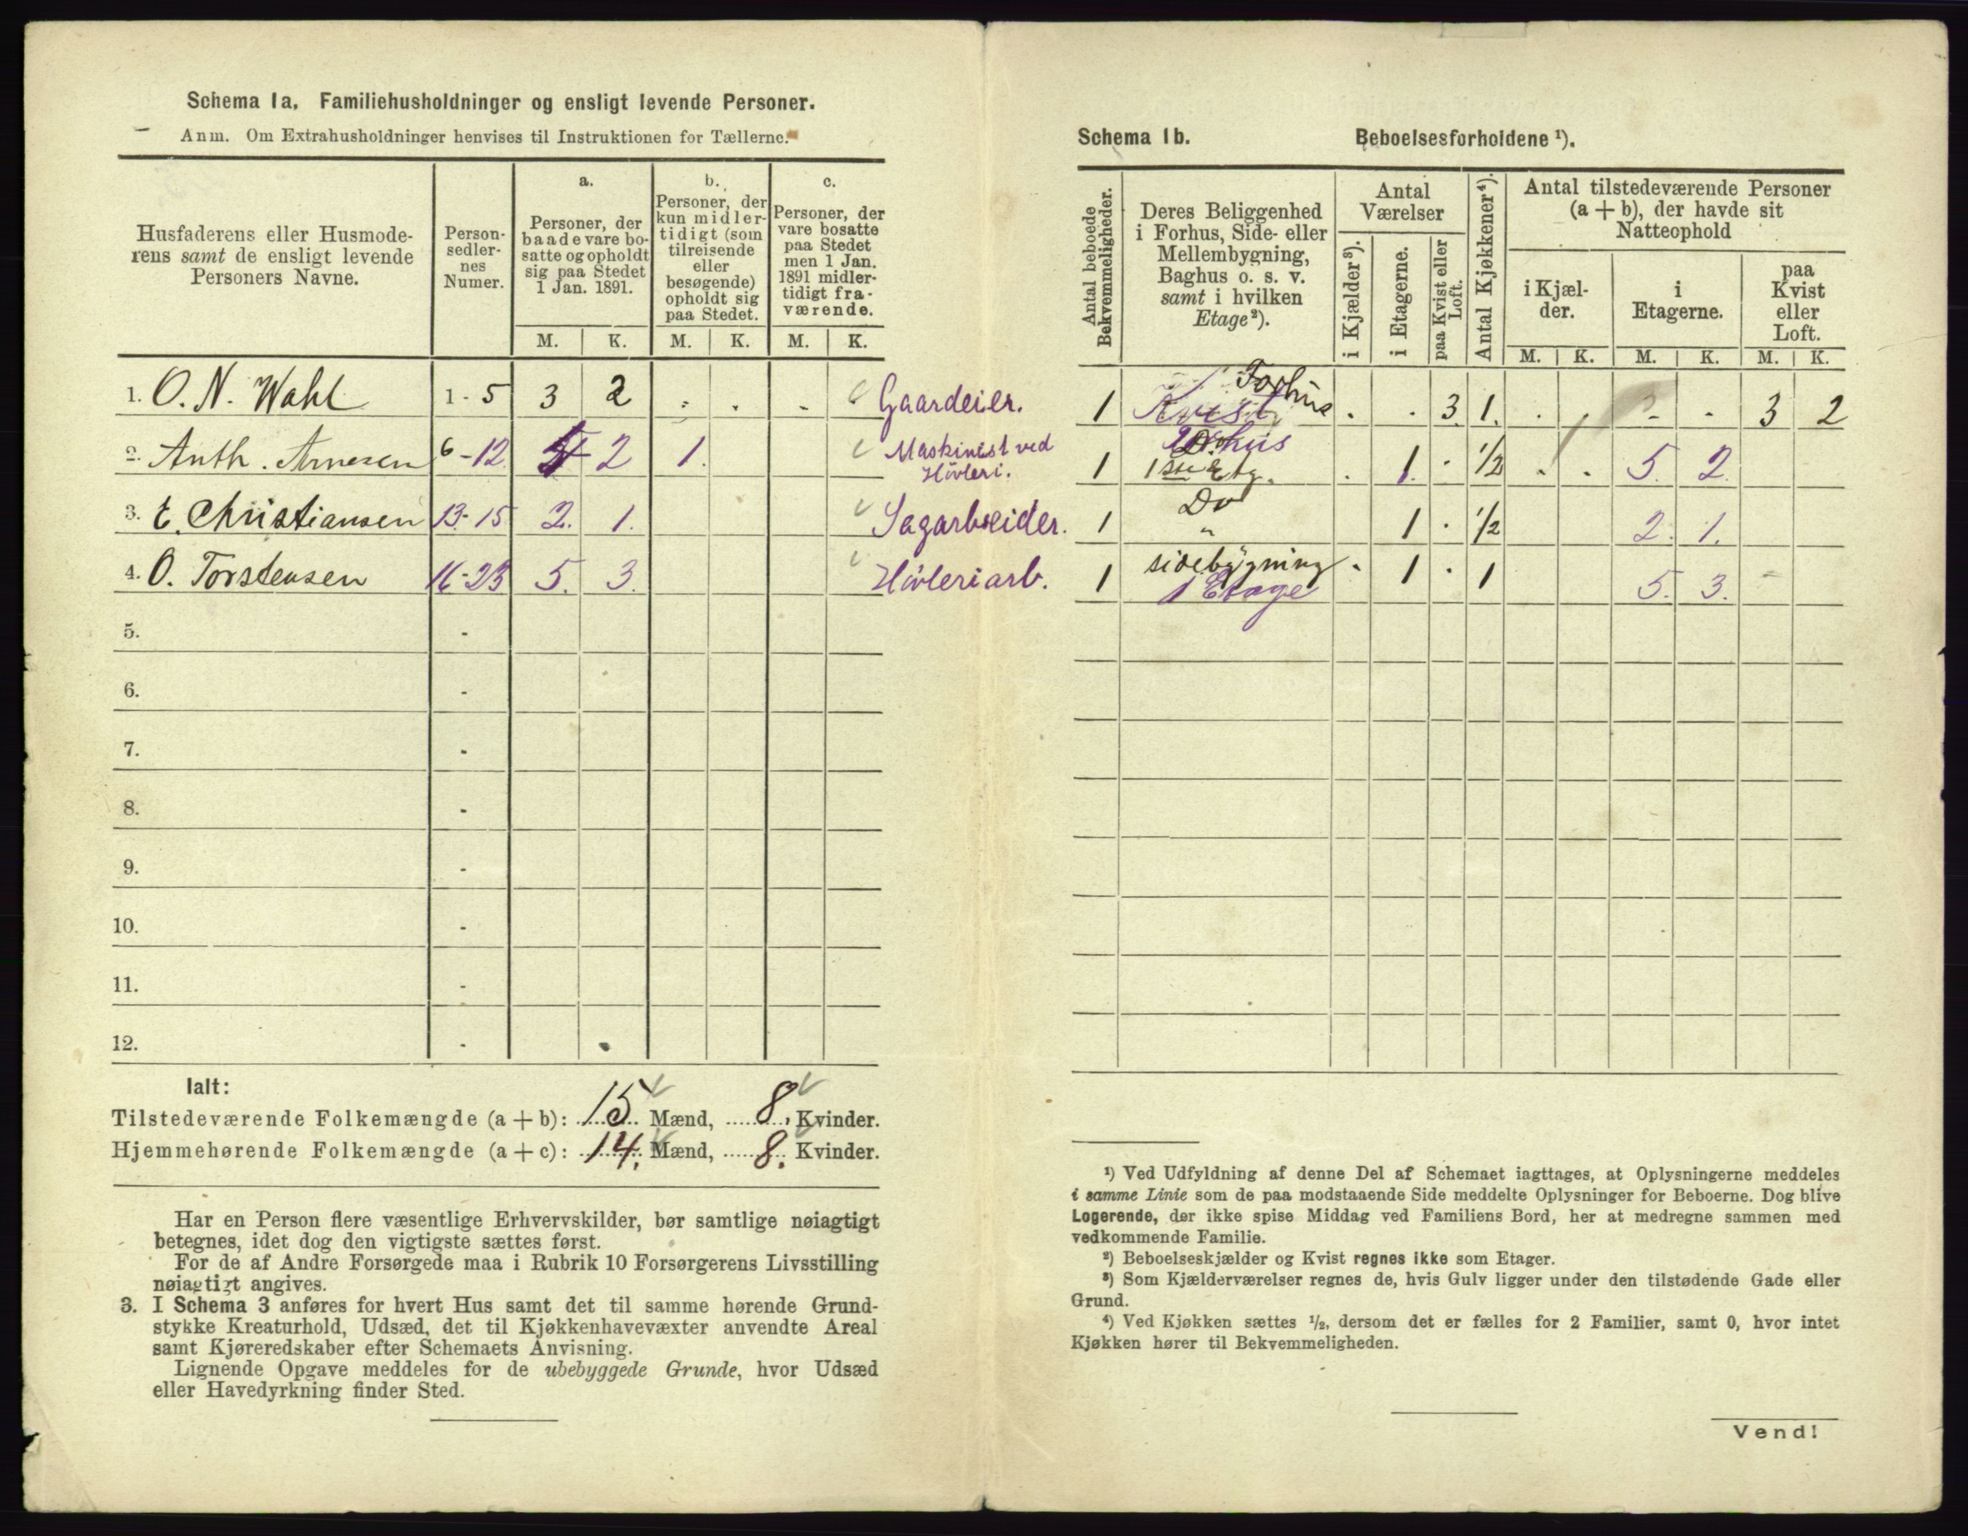 Schema 1a. Familiehusholdninger og ensligt levende Personer.
Anm. Om Extrahusholdninger henvises til Instruktionen for Tællerne.
Husfaderens eller Husmode-
rens samt de ensligt levende
Personers Navne.
Person-
sedler-
nes
Numer.
a.
Personer, der
baade vare bo-
satte og opholdt
sig paa Stedet
1 Jan. 1891.
b.
Personer, der
kun midler-
tidigt (som
tilreisende
eller
besøgende)
opholdt sig
paa Stedet.
c.
Personer, der
vare bosatte
paa Stedet
men 1 Jan.
1891 midler-
tidigt fra-
værende.
M. K. M. K. M. K.
1. O. N. Wahl 1 - 5 3 2 . . . Gaardeier.
2. Anth. Arnesen 6 - 12. 4 2 1. Maskinist ved
Høvleri.
3. E. Christiansen 13 - 15 2. 1. Sagarbeider.
4. O. Torstensen 16 - 23 5. 3. Høvleriarb.
5. -
6. -
7. -
8. -
9. -
10. -
11. -
12. -
Ialt:
Tilstedeværende Folkemængde (a + b): 15 Mænd, 8, Kvinder.
Hjemmehørende Folkemængde (a + c): 14. Mænd, 8. Kvinder.
Har en Person flere væsentlige Erhvervskilder, bør samtlige nøiagtigt
betegnes, idet dog den vigtigste sættes først.
For de af Andre Forsørgede maa i Rubrik 10 Forsørgerens Livsstilling
nøiagtigt angives.
3. I Schema 3 anføres for hvert Hus samt det til samme hørende Grund-
stykke Kreaturhold, Udsæd, det til Kjøkkenhavevæxter anvendte Areal
samt Kjøreredskaber efter Schemaets Anvisning.
Lignende Opgave meddeles for de ubebyggede Grunde, hvor Udsæd
eller Havedyrkning finder Sted.
Schema 1b. Beboelsesforholdene ¹).
Antal beboede
Bekvemmeligheder.
Deres Beliggenhed
i Forhus, Side- eller
Mellembygning,
Baghus o. s. v.
samt i hvilken
Etage²).
Antal
Værelser
i Kjælder³).
i Etagerne.
paa Kvist eller
Loft.
Antal Kjøkkener⁴).
Antal tilstedeværende Personer
(a + b), der havde sit
Natteophold
i Kjæl-
der.
i
Etagerne.
paa
Kvist
eller
Loft.
M. K. M. K. M. K.
Forhus
1 Kvist . . 3. 1. . . - . 3 2
Do
1 1ste Etg. . 1. . 1/2 . . 5. 2.
Do
1 " 1 . 1/2 2. 1.
sidebygning
1 1 Etage . 1 . 1 5. 3.
¹) Ved Udfyldning af denne Del af Schemaet iagttages, at Oplysningerne meddeles
i samme Linie som de paa modstaaende Side meddelte Oplysninger for Beboerne. Dog blive
Logerende, der ikke spise Middag ved Familiens Bord, her at medregne sammen med
vedkommende Familie.
²) Beboelseskjælder og Kvist regnes ikke som Etager.
³) Som Kjælderværelser regnes de, hvis Gulv ligger under den tilstødende Gade eller
Grund.
⁴) Ved Kjøkken sættes ¹/₂, dersom det er fælles for 2 Familier, samt 0, hvor intet
Kjøkken hører til Bekvemmeligheden.
Vend!